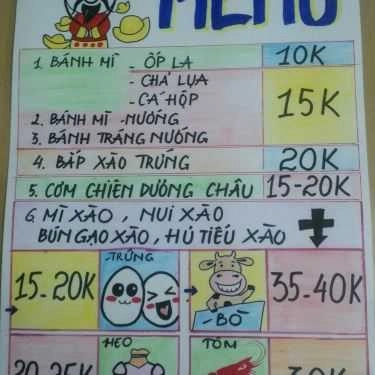 MENU
1. BÁNH MÌ - ỐP LA 10K
- CHẢ LỤA
- CÁ HỘP
15K
2. BÁNH MÌ - NƯỚNG
3. BÁNH TRÁNG NƯỚNG
4. BẮP XÀO TRỨNG 20K
5. CƠM CHIÊN DƯƠNG CHÂU 15-20K
6. MÌ XÀO, NUI XÀO
BÚN GẠO XÀO, HỦ TIẾU XÀO +
15-20K TRỨNG - BÒ 35-40K
HEO TÔM
20-25K 30K